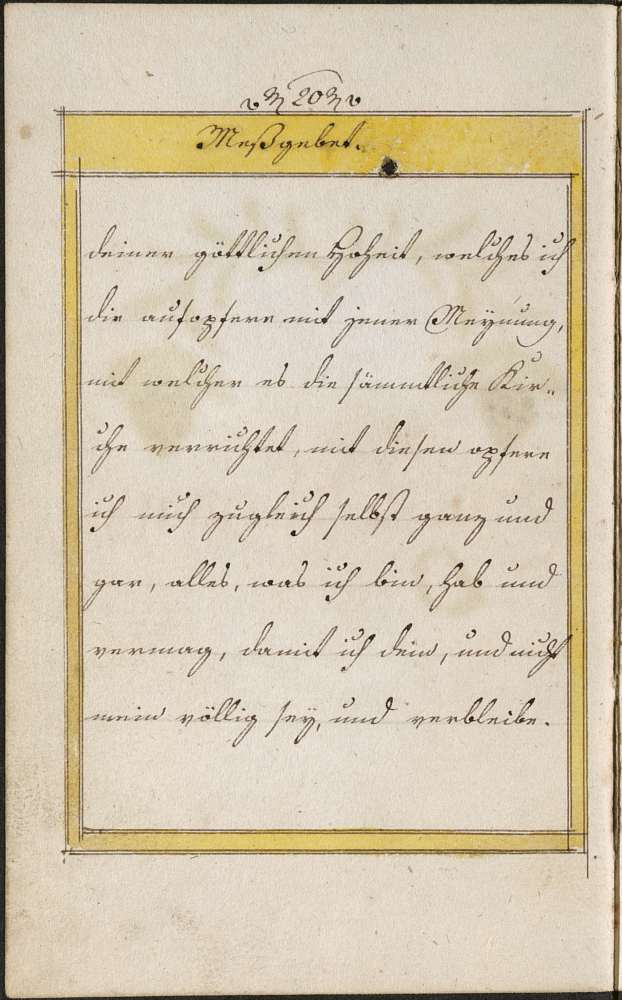 20
Meßgebet.
deiner göttlichen Hoheit, welches ich
dir aufopfere mit jener Meynung,
mit welcher es die sämmtliche Kir„
che verrichtet, mit diesen opfere
ich mich zugleich selbst ganz und
gar, alles, was ich bin, hab und
vermag, damit ich dein, und nicht
mein völlig sey, und verbleibe.